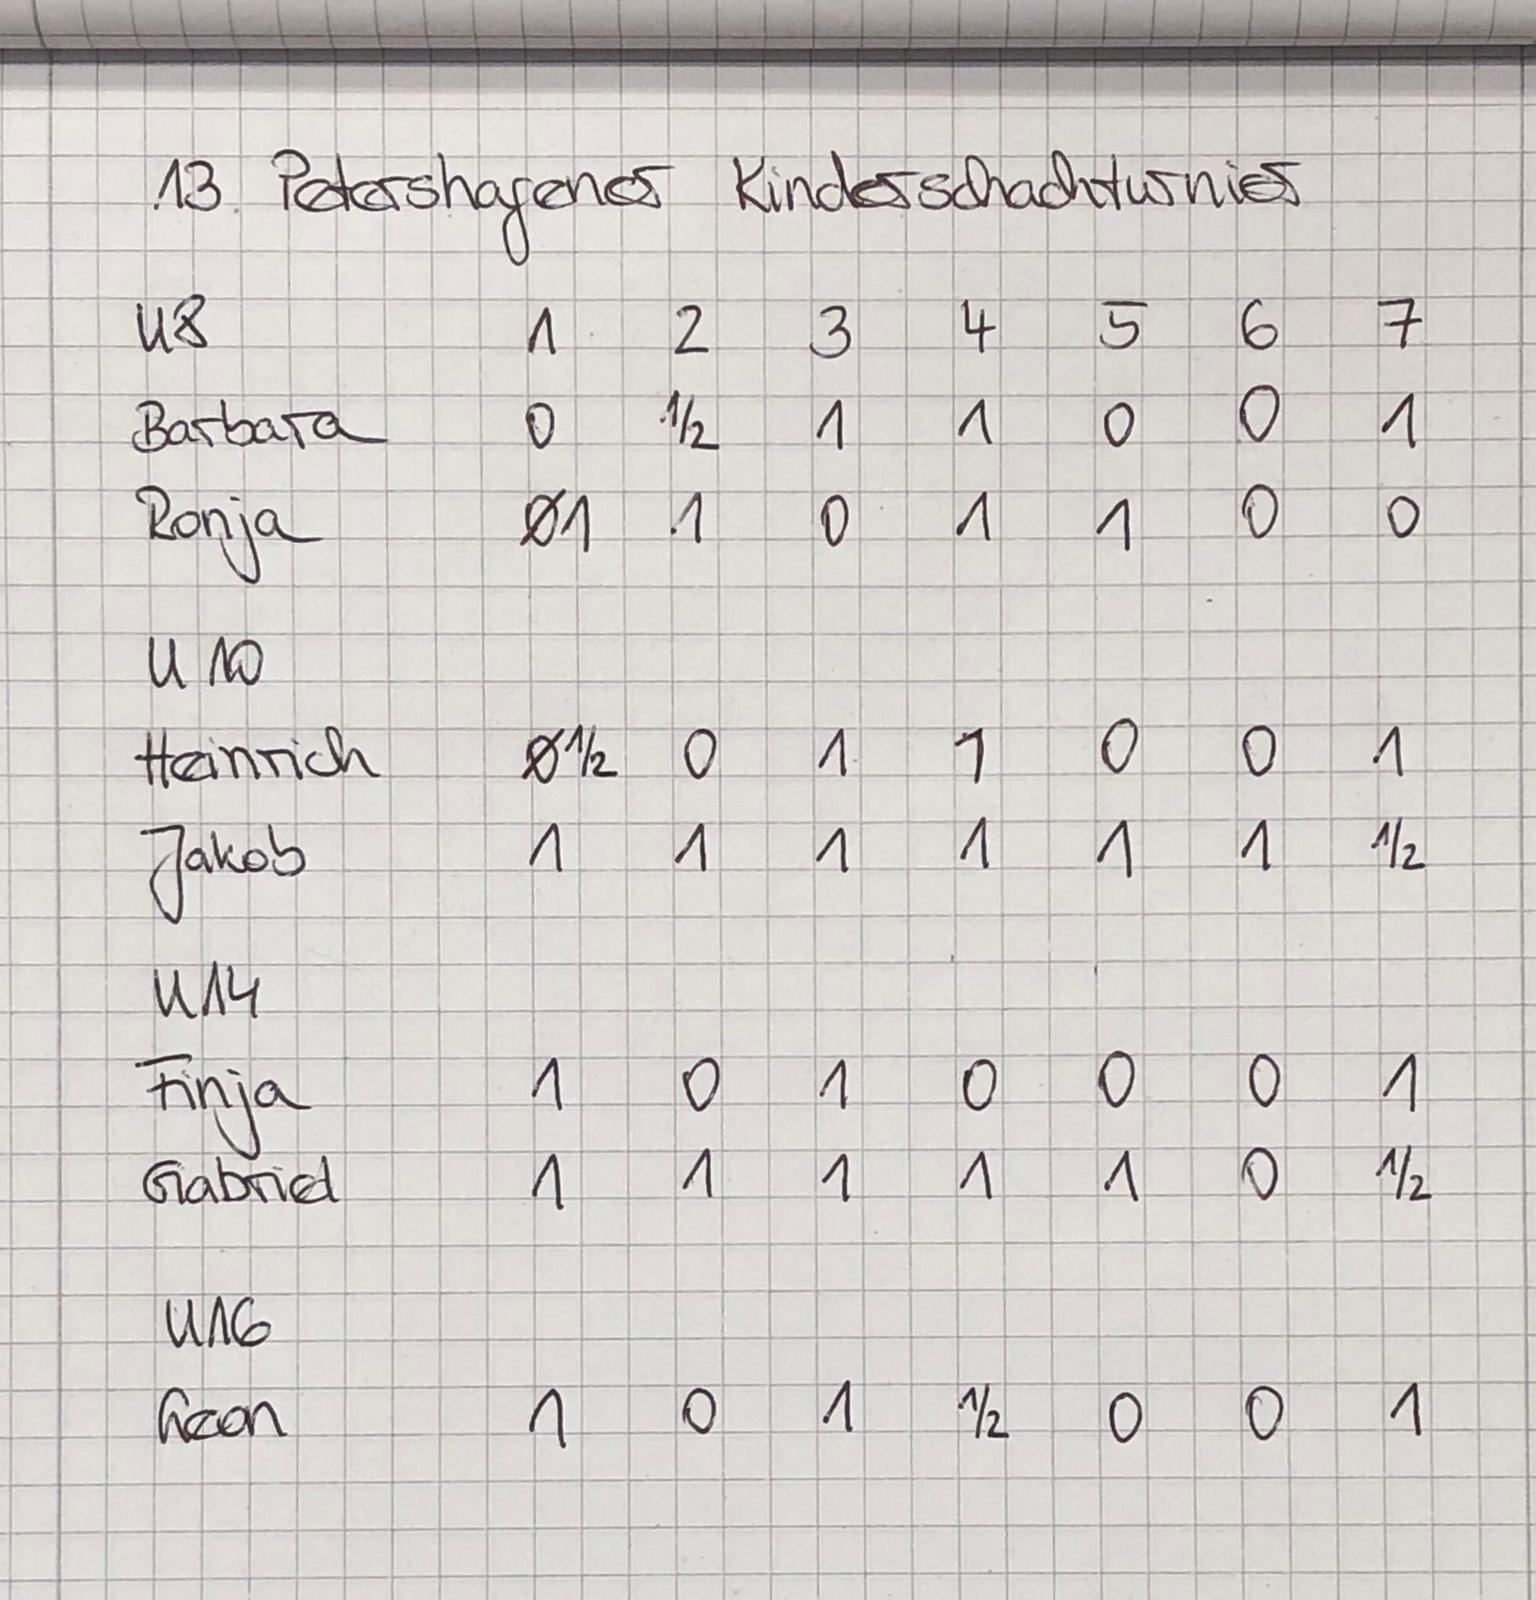 13. Petershagener Kinderschachturnier
U8 1 2 3 4 5 6 7
Barbara 0 1/2 1 1 0 0 1
Ronja 0 1 1 0 1 1 0 0
U10
Heinrich 0 1/2 0 1 1 0 0 1
Jakob 1 1 1 1 1 1 1/2
U14
Finja 1 0 1 0 0 0 1
Gabriel 1 1 1 1 1 0 1/2
U16
Leon 1 0 1 1/2 0 0 1